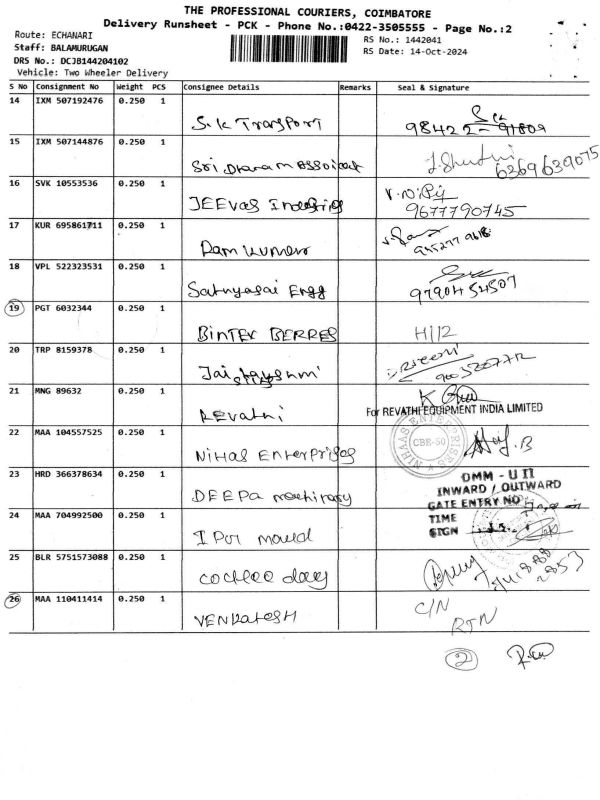 THE PROFESSIONAL COURIERS, COIMBATORE
Delivery Runsheet - PCK - Phone No.:0422-3505555 - Page No.:2
Route: ECHANARI
RS No.: 1442041
Staff: BALAMURUGAN
RS Date: 14-Oct-2024
DRS No.: DCJB144204102
Vehicle: Two Wheeler Delivery
S No Consignment No Weight PCS Consignee Details Remarks Seal & Signature
14 IXM 507192476 0.250 1
S.K Transport 98422-91809
15 IXM 507144876 0.250 1
Sri 6369639075
16 SVK 10553536 0.250 1
JEEVas 9677790745
17 KUR 695861711 0.250 1
Ram Kumar
18 VPL 522323531 0.250 1
Sathyasai Engg 9790454507
19 PGT 6032344 0.250 1
BINTEX BERRES H/12
20 TRP 8159378 0.250 1
Jai
21 MNG 89632 0.250 1
Revathi
For REVATHI EQUIPMENT INDIA LIMITED
22 MAA 104557525 0.250 1
NIHAS ENterprises
NIHAAS ENTERPRISES
CBE-50
23 HRD 366378634 0.250 1
DEEPA machinary
DMM - U II
INWARD / OUTWARD
GATE ENTRY NO
TIME
SIGN
24 MAA 704992500 0.250 1
25 BLR 5751573088 0.250 1
26 MAA 110411414 0.250 1
VENKatesH C/N
RTN
2